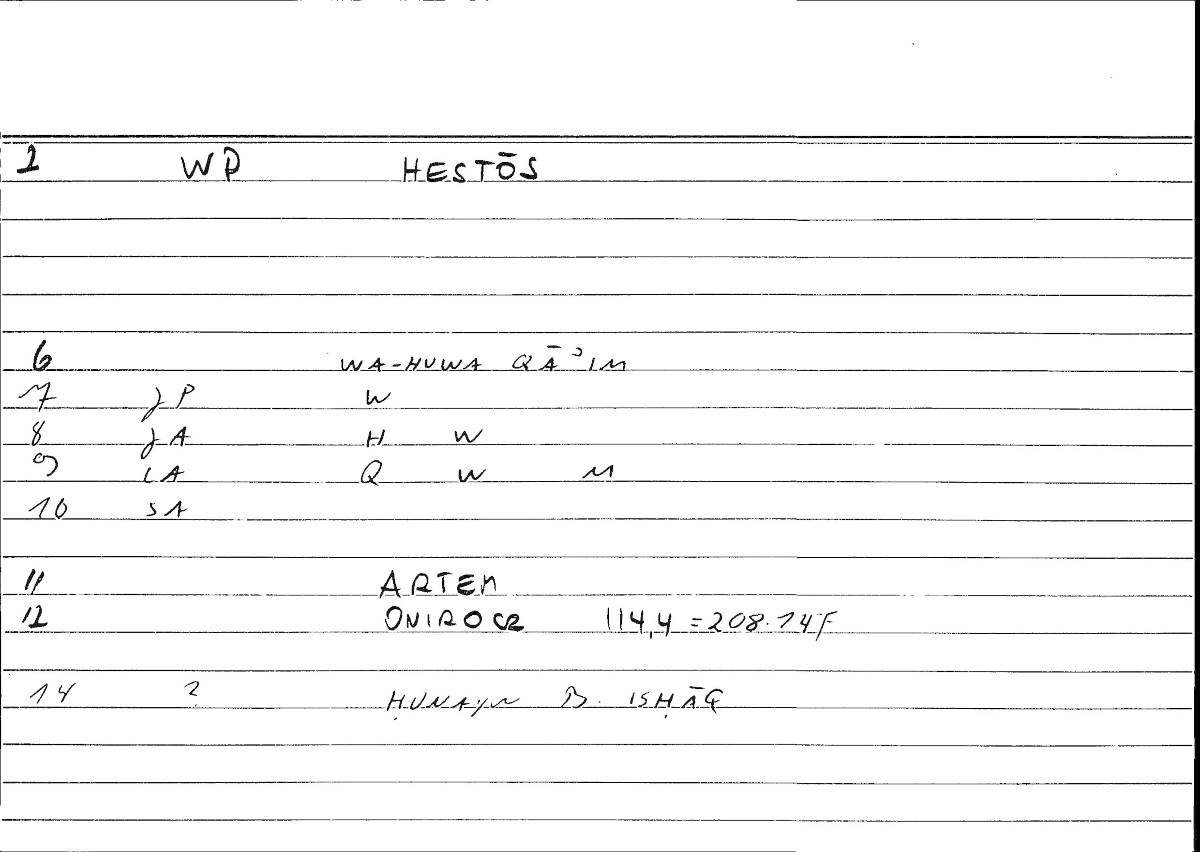 1 WP HESTŌS
6 WA-HUWA QĀʾIM
7 JP W
8 JA H W
9 LA Q W M
10 SA
11 ARTEM
12 ONIROCR 114,4 = 208.14F
14 ? ḤUNAYN B. ISḤĀQ